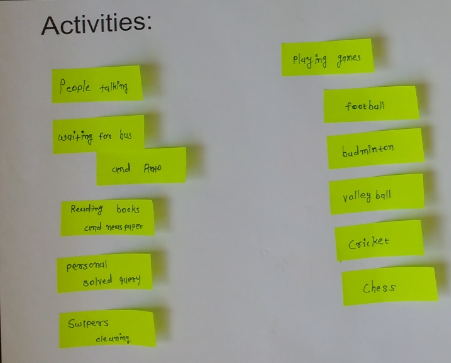 Activities:
People talking
waiting for bus
and Auto
Reading books
and news paper
personal
solved query
Swipers
cleaning
Playing games
football
badminton
volley ball
Cricket
Chess